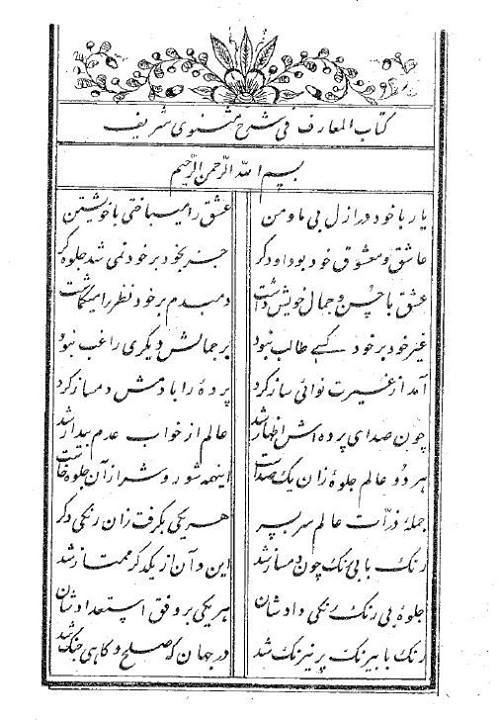 کتاب المعارف فی شرح مثنوی شریف
بسم الله الرّحمن الرّحیم
یار با خود در ازل بی ما و من عشق را میباختی با خویشتن
عاشق و معشوق خود بود او دگر جز بخود بر خود نمی شد جلوه گر
عشق با حُسن و جمال خویش داشت دمبدم بر خود نظر را میگماشت
غیر خود بر خود کسے طالب نبود بر جمالش دیگری راغب نبود
آمد از غیرت نوائی ساز کرد پردهٔ را با دمش دمساز کرد
چون صدای پرده اش اظهار شد عالم از خواب عدم بیدار شد
هر دو عالم جلوهٔ زان یک صداست اینهمه شور و شر از آن جلوه خاست
جملهٔ ذرّات عالم سر بسر هر یکی بگرفت زان رنگی دگر
رنگ با بی رنگ چون دمساز شد این و آن از یکدگر ممتاز شد
جلوهٔ بی رنگ رنگی دادشان هر یکی بر وفق استعدادشان
رنگ با بیرنگ پر نیرنگ شد در جهان گه صلح و گاهی جنگ شد